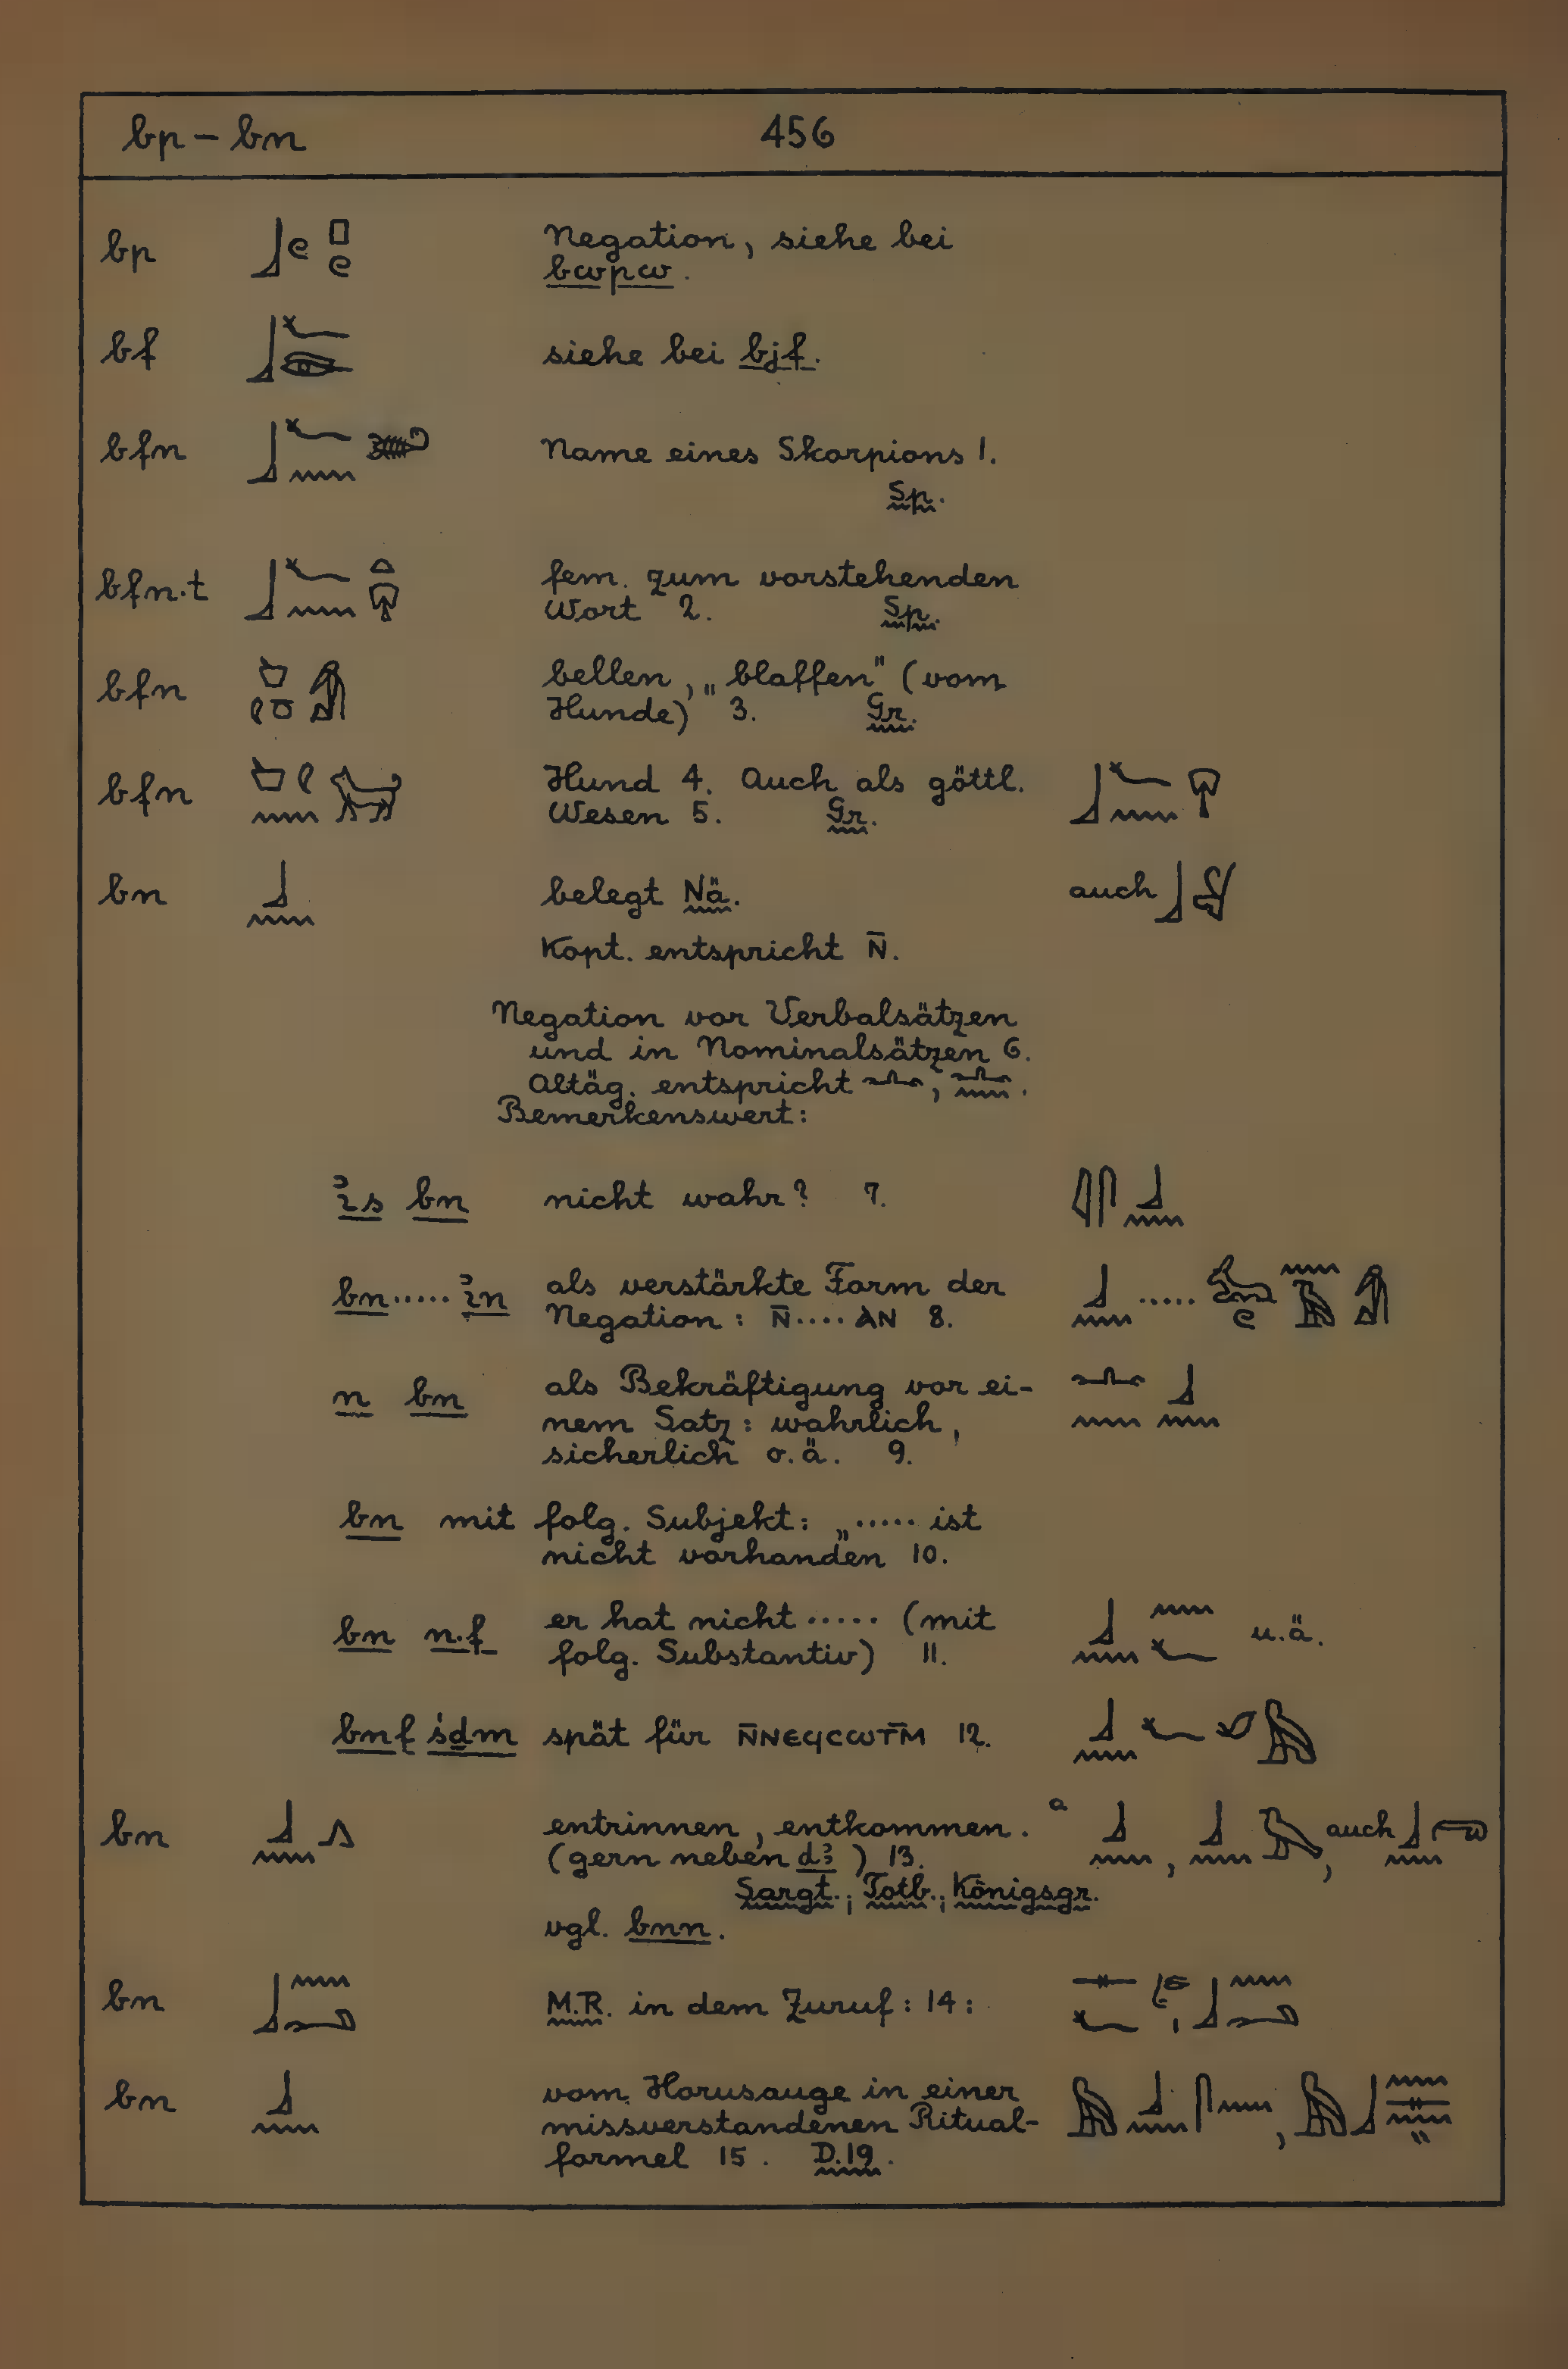 bp – bn 456
bp Negation, siehe bei
bwpw.
bf siehe bei bjf.
bfn Name eines Skorpions 1.
Sp.
bfn·t fem. zum vorstehenden
Wort 2. Sp.
bfn bellen, „blaffen" (vom
Hunde) 3. Gr.
bfn Hund 4. Auch als göttl.
Wesen 5. Gr.
bn belegt Nä. auch
Kopt. entspricht N̄.
Negation vor Verbalsätzen
und in Nominalsätzen 6.
Altäg. entspricht , .
Bemerkenswert:
ꞽs bn nicht wahr? 7.
bn ..... ꞽn als verstärkte Form der .....
Negation: N̄ .... ⲀN 8.
n bn als Bekräftigung vor ei-
nem Satz: wahrlich,
sicherlich o.ä. 9.
bn mit folg. Subjekt: „..... ist
nicht vorhanden 10.
bn n·f er hat nicht ..... (mit u.ä.
folg. Substantiv) 11.
bnf śḏm spät für Ⲛ̄ⲚⲈϤⲤⲰⲦⲘ̄ 12.
bn entrinnen, entkommen. a , , auch
(gern neben dꜣ) 13.
Sargt.; Totb.; Königsgr.
vgl. bnn.
bn M.R. in dem Zuruf: 14:
bn vom Horusauge in einer ,
missverstandenen Ritual-
formel 15. D.19.